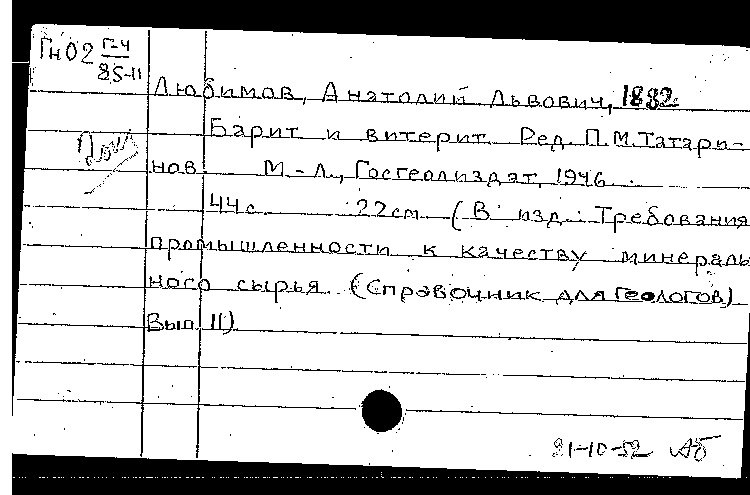 Гн02 Г-4
85-11
Любимов, Анатолий Львович, 1882.
Барит и витерит. Ред. П.М.Татари-
нов. М.-Л., Госгеолиздат, 1946.
44с. 22см. (В изд.: Требования
промышленности к качеству минераль
ного сырья. (Справочник для геологов)
Вып. 11)
21-10-52